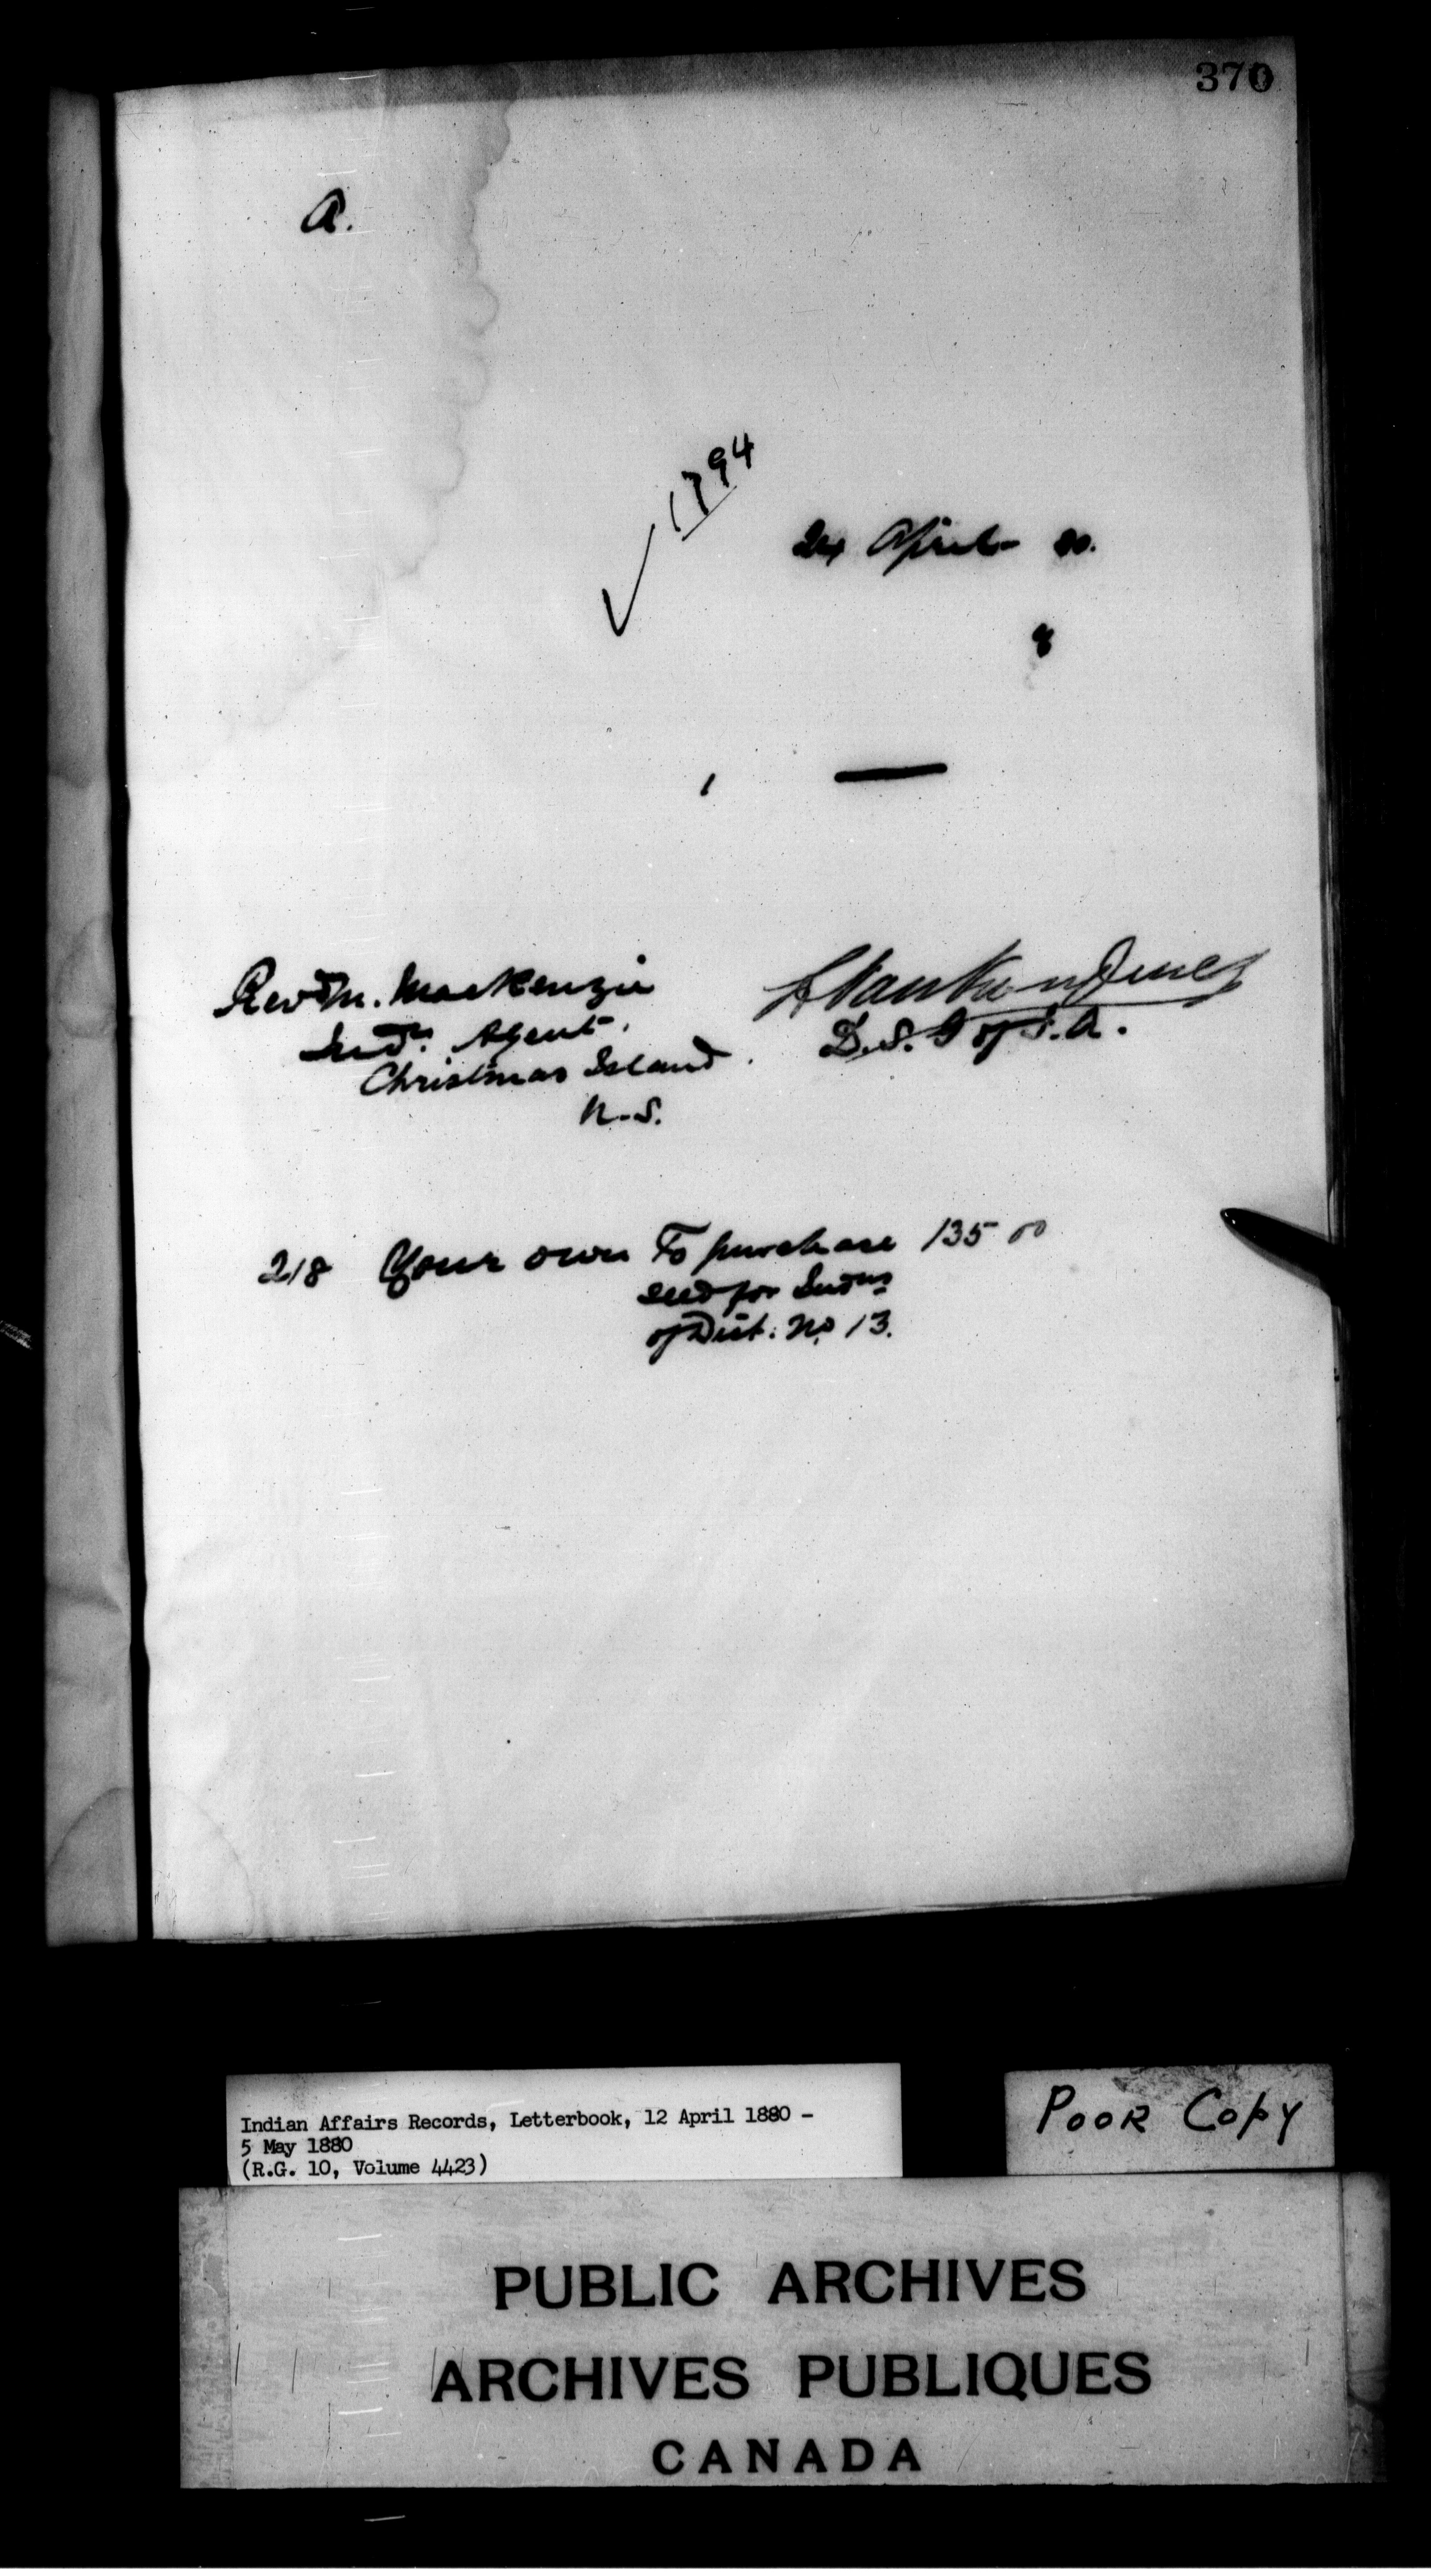 370
A.
1794
24 April 80.
8
1 —
Revd M. MacKenzie
Indn. Agent.
Christmas Island.
N.S.
L Vankoughnet
D.S.G of I.A.
218 Your own To purchase 135 00
seed for Indns
of Dist. No 13.
Indian Affairs Records, Letterbook, 12 April 1880 -
5 May 1880
(R.G. 10, Volume 4423)
POOR COPY
PUBLIC ARCHIVES
ARCHIVES PUBLIQUES
CANADA